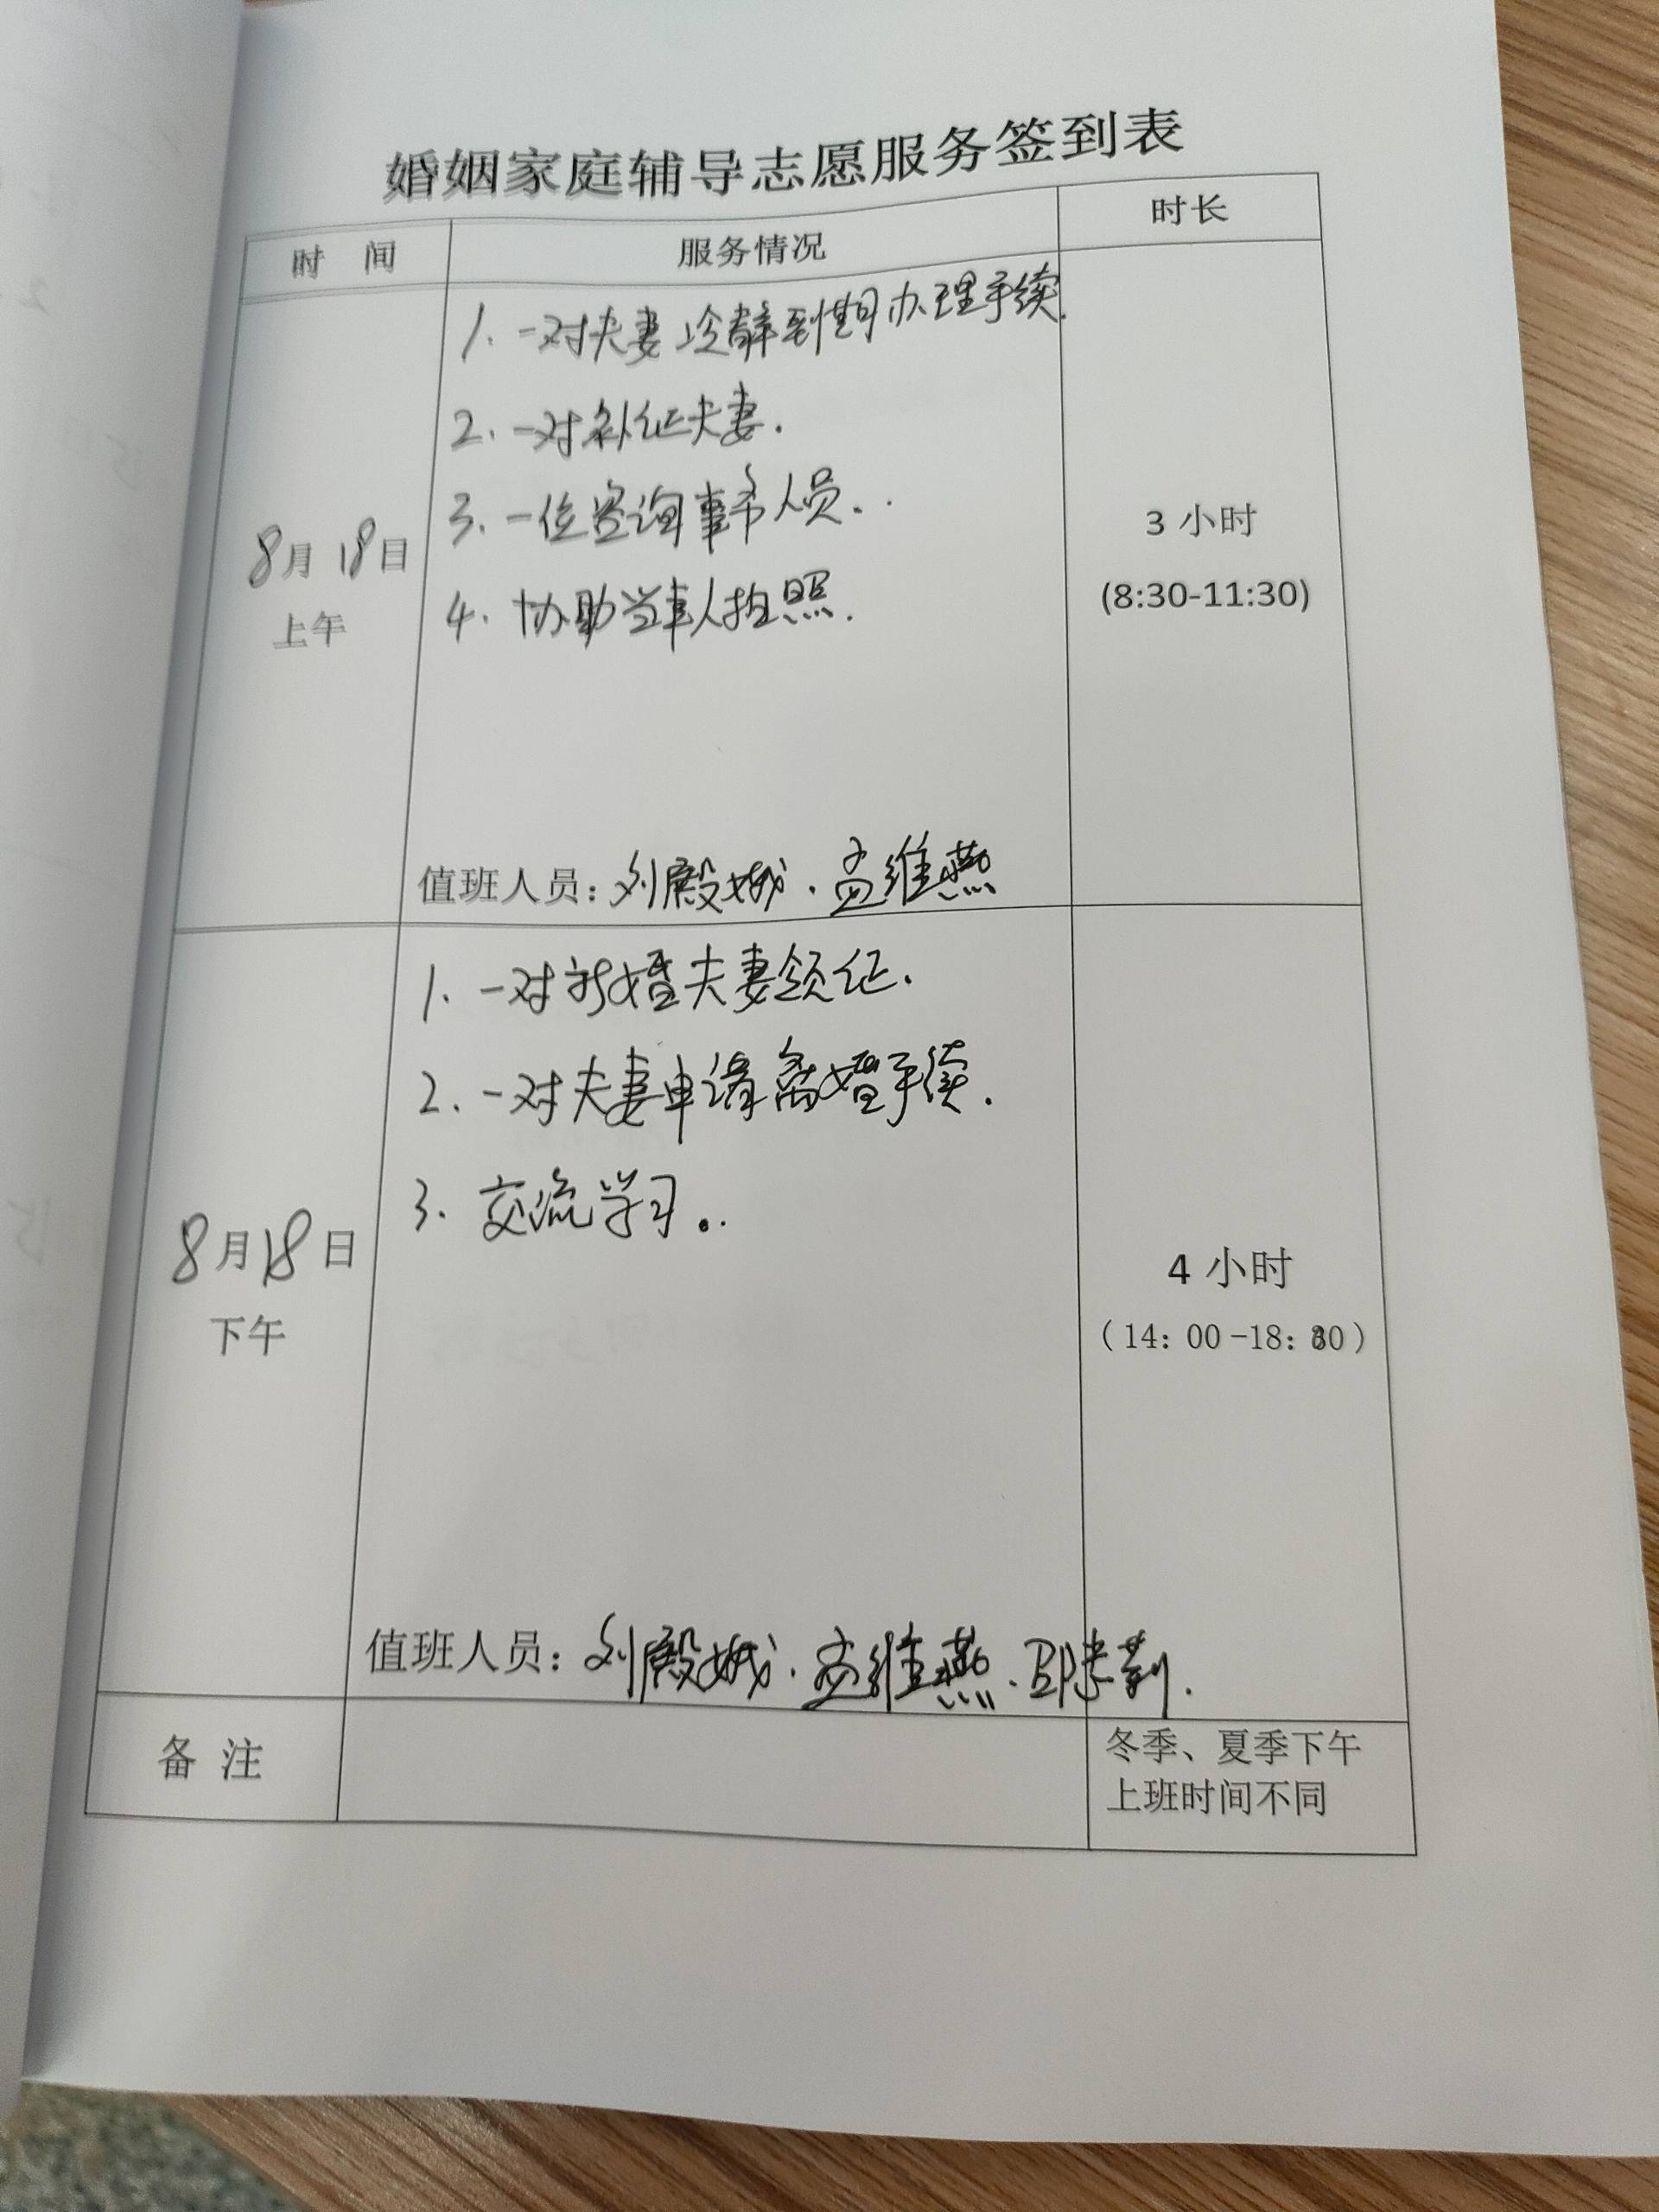 婚姻家庭辅导志愿服务签到表
时 间 服务情况 时长
1. 一对夫妻冷静到期办理手续.
2. 一对补证夫妻.
3. 一位咨询事务人员..
4. 协助当事人拍照.
8月18日
上午
3 小时
(8:30-11:30)
值班人员: 刘殿娥. 孟维燕
1. 一对新婚夫妻领证.
2. 一对夫妻申请离婚手续.
3. 交流学习..
8月18日
下午
4 小时
(14: 00-18: 00)
值班人员: 刘殿娥. 孟维燕.
备 注
冬季、夏季下午
上班时间不同